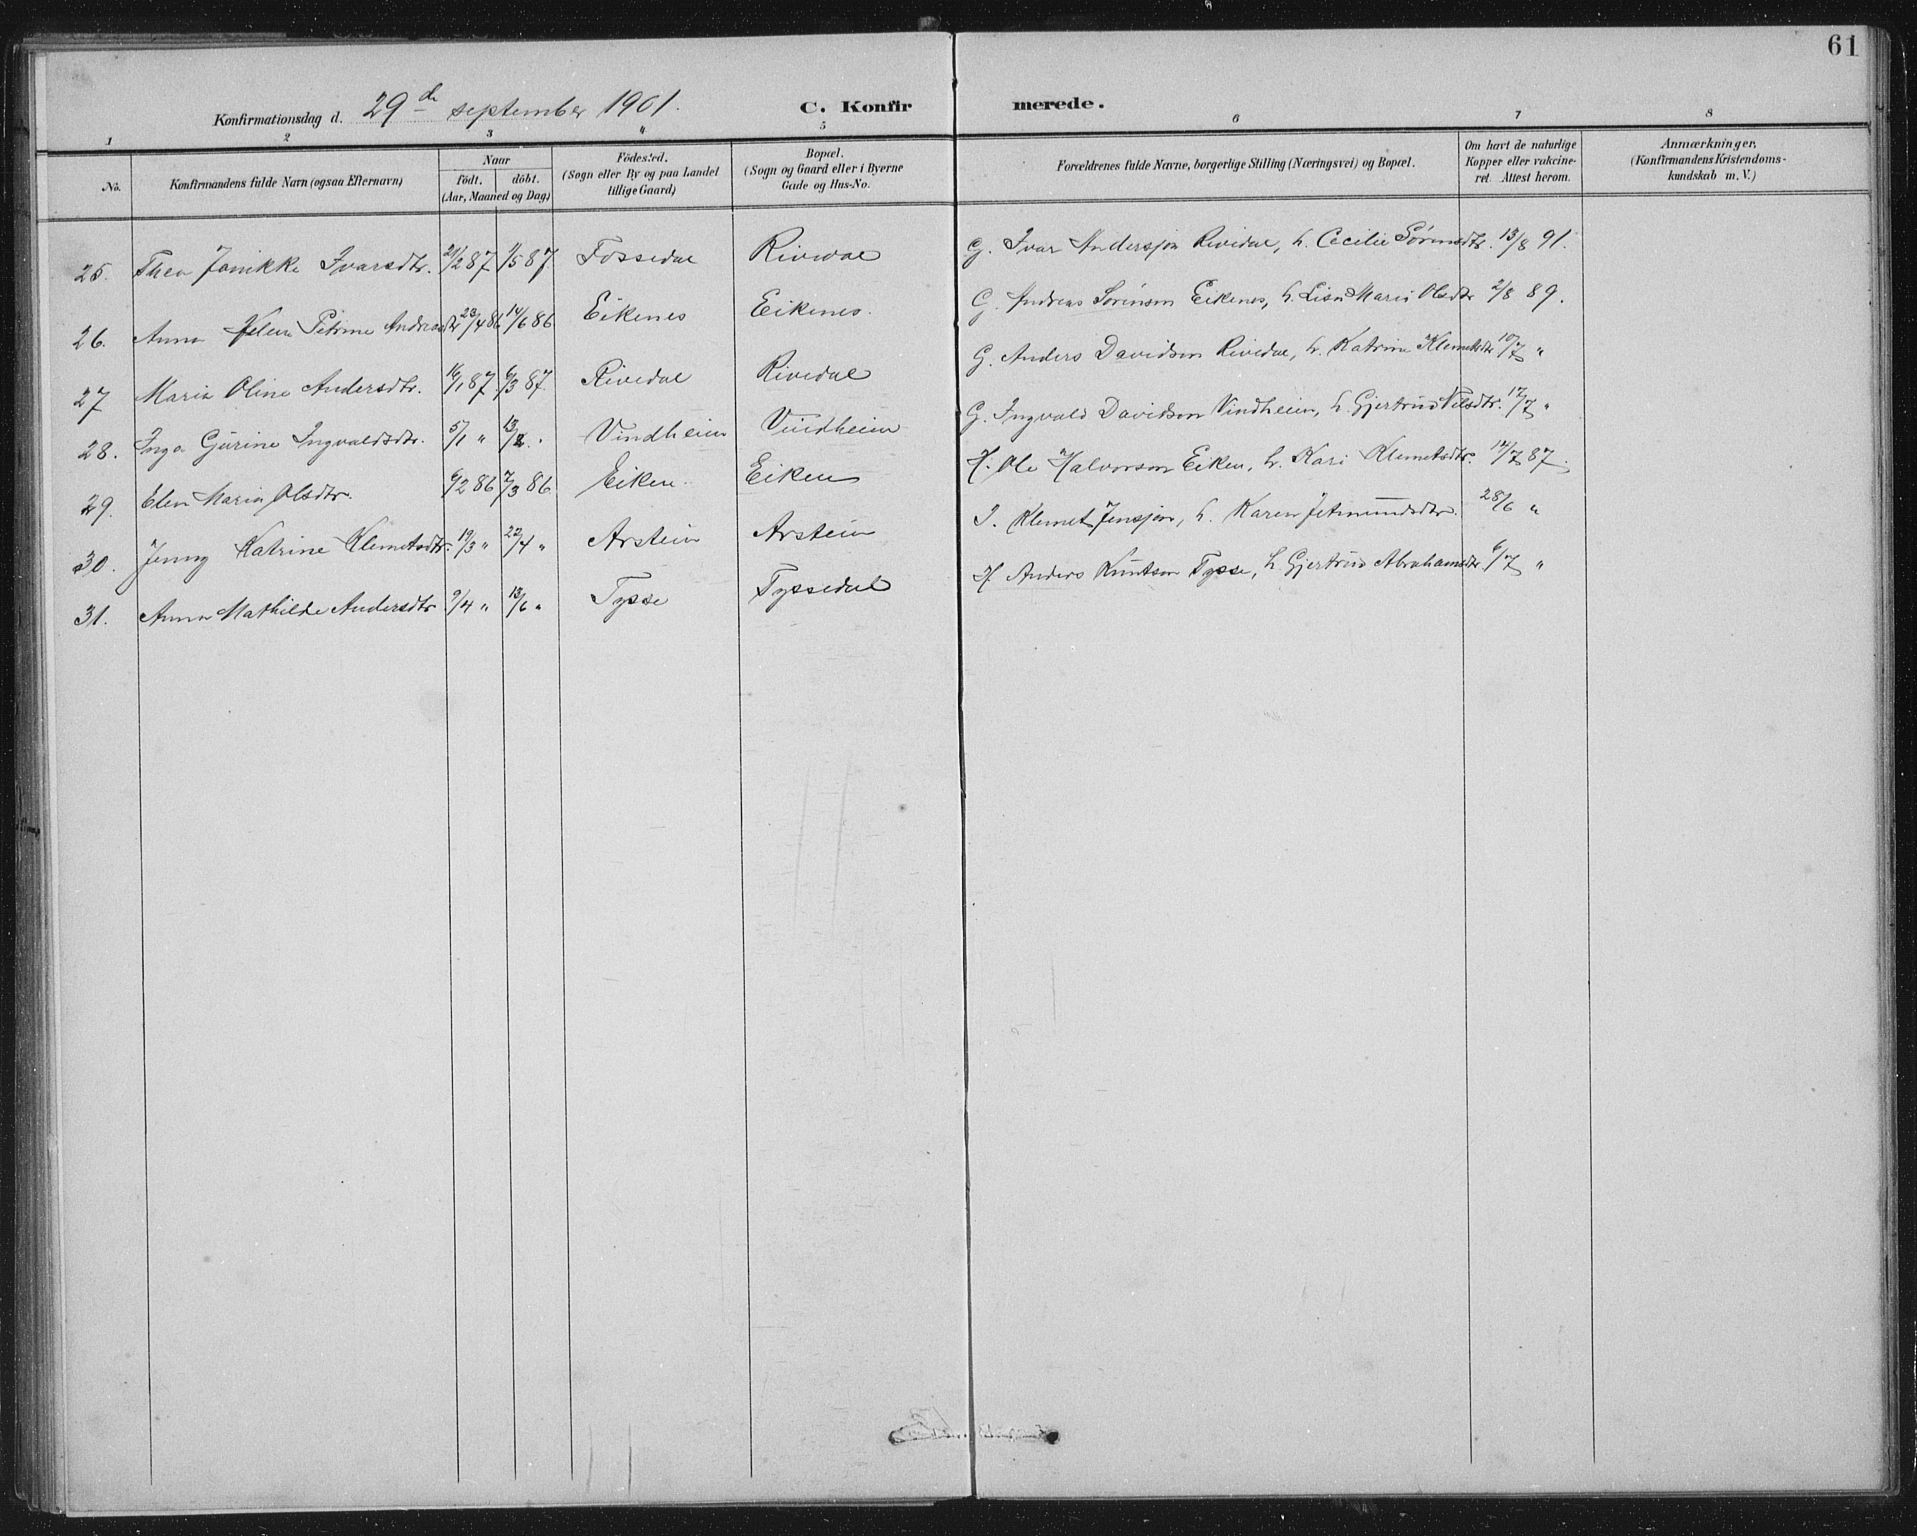 61
Konfirmationsdag d. 29de september 1901. C. Konfir merede.
1 2 3 4 5 6 7 8
No. Konfirmandens fulde Navn (ogsaa Efternavn) Naar födt. döbt. (Aar, Maaned og Dag) Födested. (Sogn eller By og paa Landet tillige Gaard) Bopæl. (Sogn og Gaard eller i Byerne Gade og Hus-No. Forældrenes fulde Navne, borgerlige Stilling (Næringsvei) og Bopæl. Om havt de naturlige Kopper eller vakcineret. Attest herom. Anmærkninger, (Konfirmandens Kristendomskundskab m. V.)
25. Thea Janikke Ivarsdtr. 21/2 87 1/5 87. Fossedal Rivedal G. Ivar Andersson Rivedal, h. Cecilie Sörensdtr. 13/8 91.
26. Anna Helene Petrine Andreasdtr 23/4 86 14/6 86 Eikenes Eikenes. G. Andreas Sörenson Eikenes, h. Lisa Maria Olsdtr 2/8 89.
27 Maria Oline Andersdtr. 16/1 87. 6/3 87. Rivedal Rivedal G. Anders Davidson Rivedal, h. Katrine Klemetsdtr 10/7 "
28. Inga Gurine Ingvaldsdtr. 5/1 " 13/2. " Vindheim Vindheim G. Ingvald Davidson Vindheim, h. Gjertrud Nilsdtr. 17/7 "
29. Elen Maria Olsdtr. 6/2 86 7/3 86. Eiken Eiken H. Ole Halvorson Eiken, h. Kari Klemetsdtr. 14/7 87.
30. Jenny Katrine Klemetsdtr. 19/3 " 22/4 " Arstein Arstein I. Klemet Jensson, h. Karen Jetmundsdtr. 28/6 "
31. Anna Mathilde Andersdtr 9/4 " 13/6 " Tysse Tyssedal H Anders Knutson Tysse, h. Gjertrud Abrahamsdtr 6/7 "